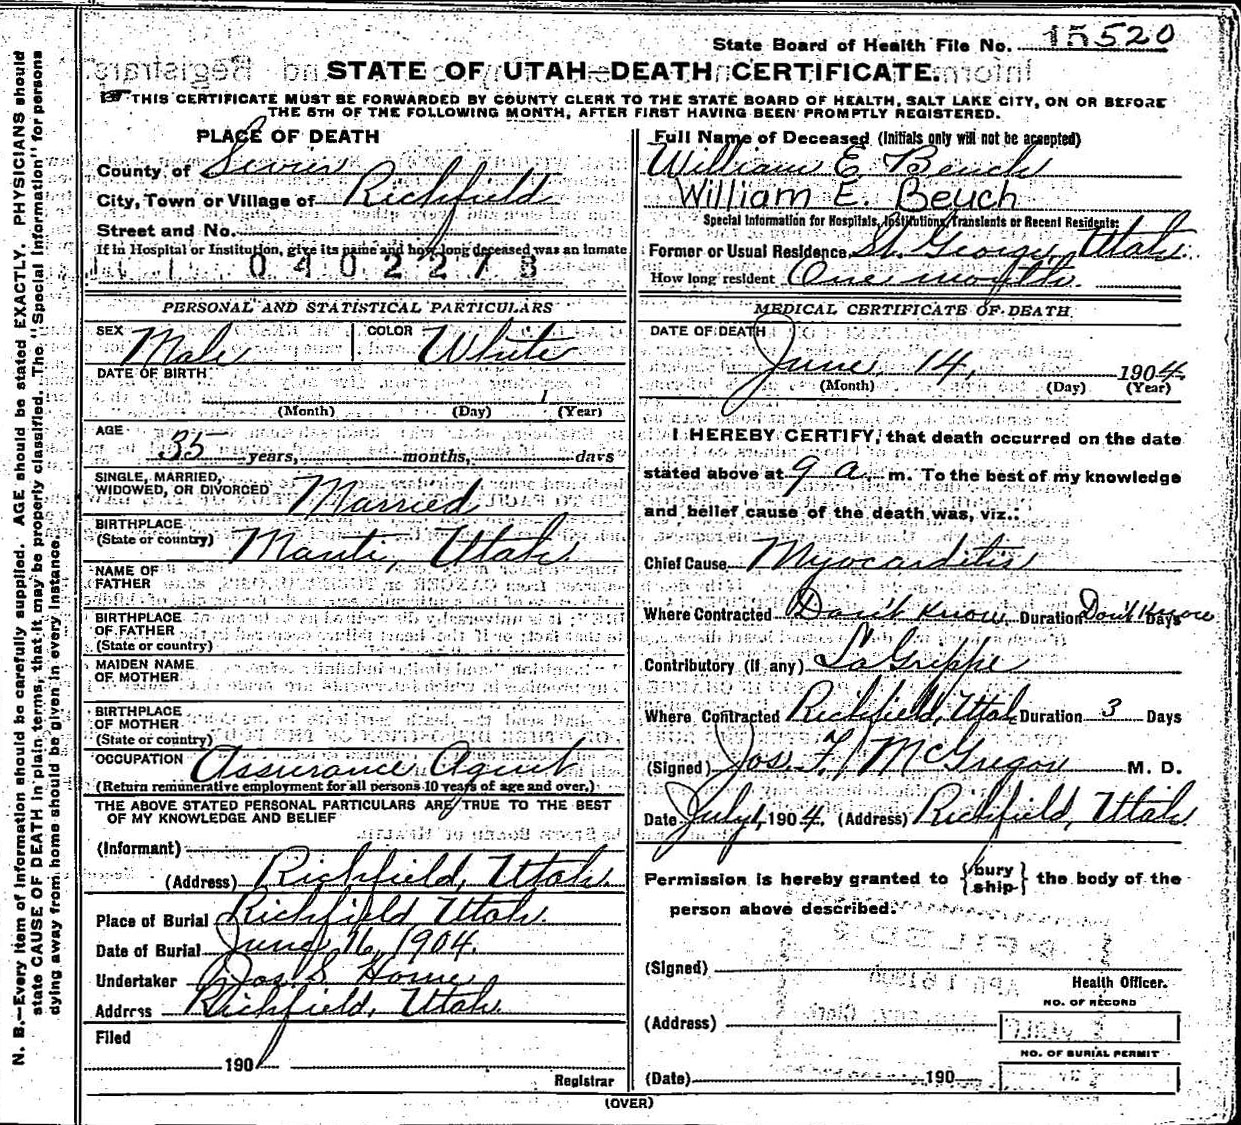 State Board of Health File No. 15520
STATE OF UTAH—DEATH CERTIFICATE.
THIS CERTIFICATE MUST BE FORWARDED BY COUNTY CLERK TO THE STATE BOARD OF HEALTH, SALT LAKE CITY, ON OR BEFORE
THE 5TH OF THE FOLLOWING MONTH, AFTER FIRST HAVING BEEN PROMPTLY REGISTERED.
N. B.—Every item of information should be carefully supplied. AGE should be stated EXACTLY. PHYSICIANS should
state CAUSE OF DEATH in plain terms, that it may be properly classified. The "Special Information" for persons
dying away from home should be given in every instance.
PLACE OF DEATH
County of Sevier
City, Town or Village of Richfield
Street and No.
If in Hospital or Institution, give its name and how long deceased was an inmate
0402273
PERSONAL AND STATISTICAL PARTICULARS
SEX Male COLOR White
DATE OF BIRTH
1
(Month) (Day) (Year)
AGE
35 years, months, days
SINGLE, MARRIED,
WIDOWED, OR DIVORCED Married
BIRTHPLACE
(State or country) Manti, Utah
NAME OF
FATHER
BIRTHPLACE
OF FATHER
(State or country)
MAIDEN NAME
OF MOTHER
BIRTHPLACE
OF MOTHER
(State or country)
OCCUPATION Assurance Agent
(Return remunerative employment for all persons 10 years of age and over.)
THE ABOVE STATED PERSONAL PARTICULARS ARE TRUE TO THE BEST
OF MY KNOWLEDGE AND BELIEF
(Informant)
(Address) Richfield, Utah.
Place of Burial Richfield Utah.
Date of Burial June 16, 1904.
Undertaker Jos S. Horne
Address Richfield, Utah.
Filed
190
Registrar
Full Name of Deceased (Initials only will not be accepted)
William E. Beuch
William E. Beuch
Special Information for Hospitals, Institutions, Transients or Recent Residents:
Former or Usual Residence St. George, Utah.
How long resident One month.
MEDICAL CERTIFICATE OF DEATH
DATE OF DEATH
June, 14, 1904.
(Month) (Day) (Year)
I HEREBY CERTIFY, that death occurred on the date
stated above at 9 a. m. To the best of my knowledge
and belief cause of the death was, viz.:
Chief Cause Myocarditis
Where Contracted Don't Know Duration Don't Know Days
Contributory (if any) La Grippe
Where Contracted Richfield, Utah Duration 3 Days
(Signed) Jos. F. McGregor M. D.
Date July 1, 1904. (Address) Richfield, Utah.
Permission is hereby granted to {bury ship} the body of the
person above described.
(Signed)
Health Officer.
NO. OF RECORD
(Address)
NO. OF BURIAL PERMIT
(Date) 190
(OVER)